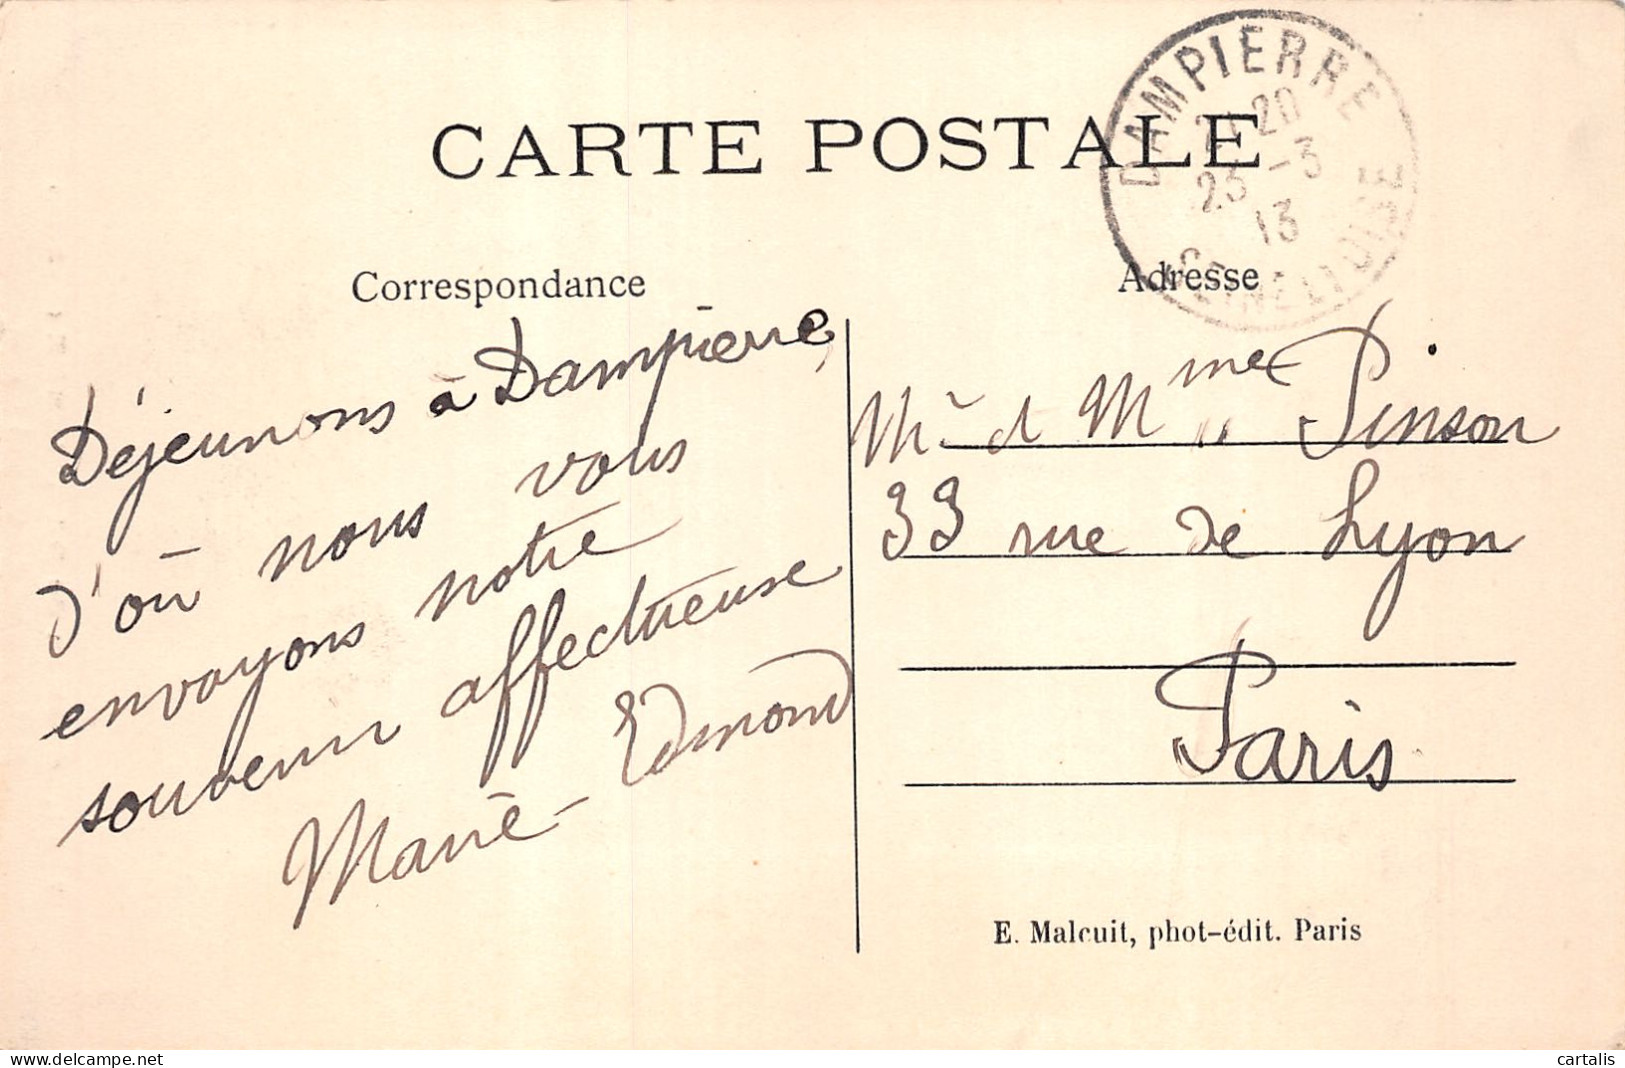 CARTE POSTALE
DAMPIERRE
20
23 -3
13
SEINE ET OISE
Correspondance
Adresse
Déjeunons à Dampierre,
d'où nous vous
envoyons notre
souvenir affectueuse
Marie - Edmond
Mr et Mme Pinson
33 rue de Lyon
Paris
E. Malcuit, phot-édit. Paris
delcampe.net
cartalis